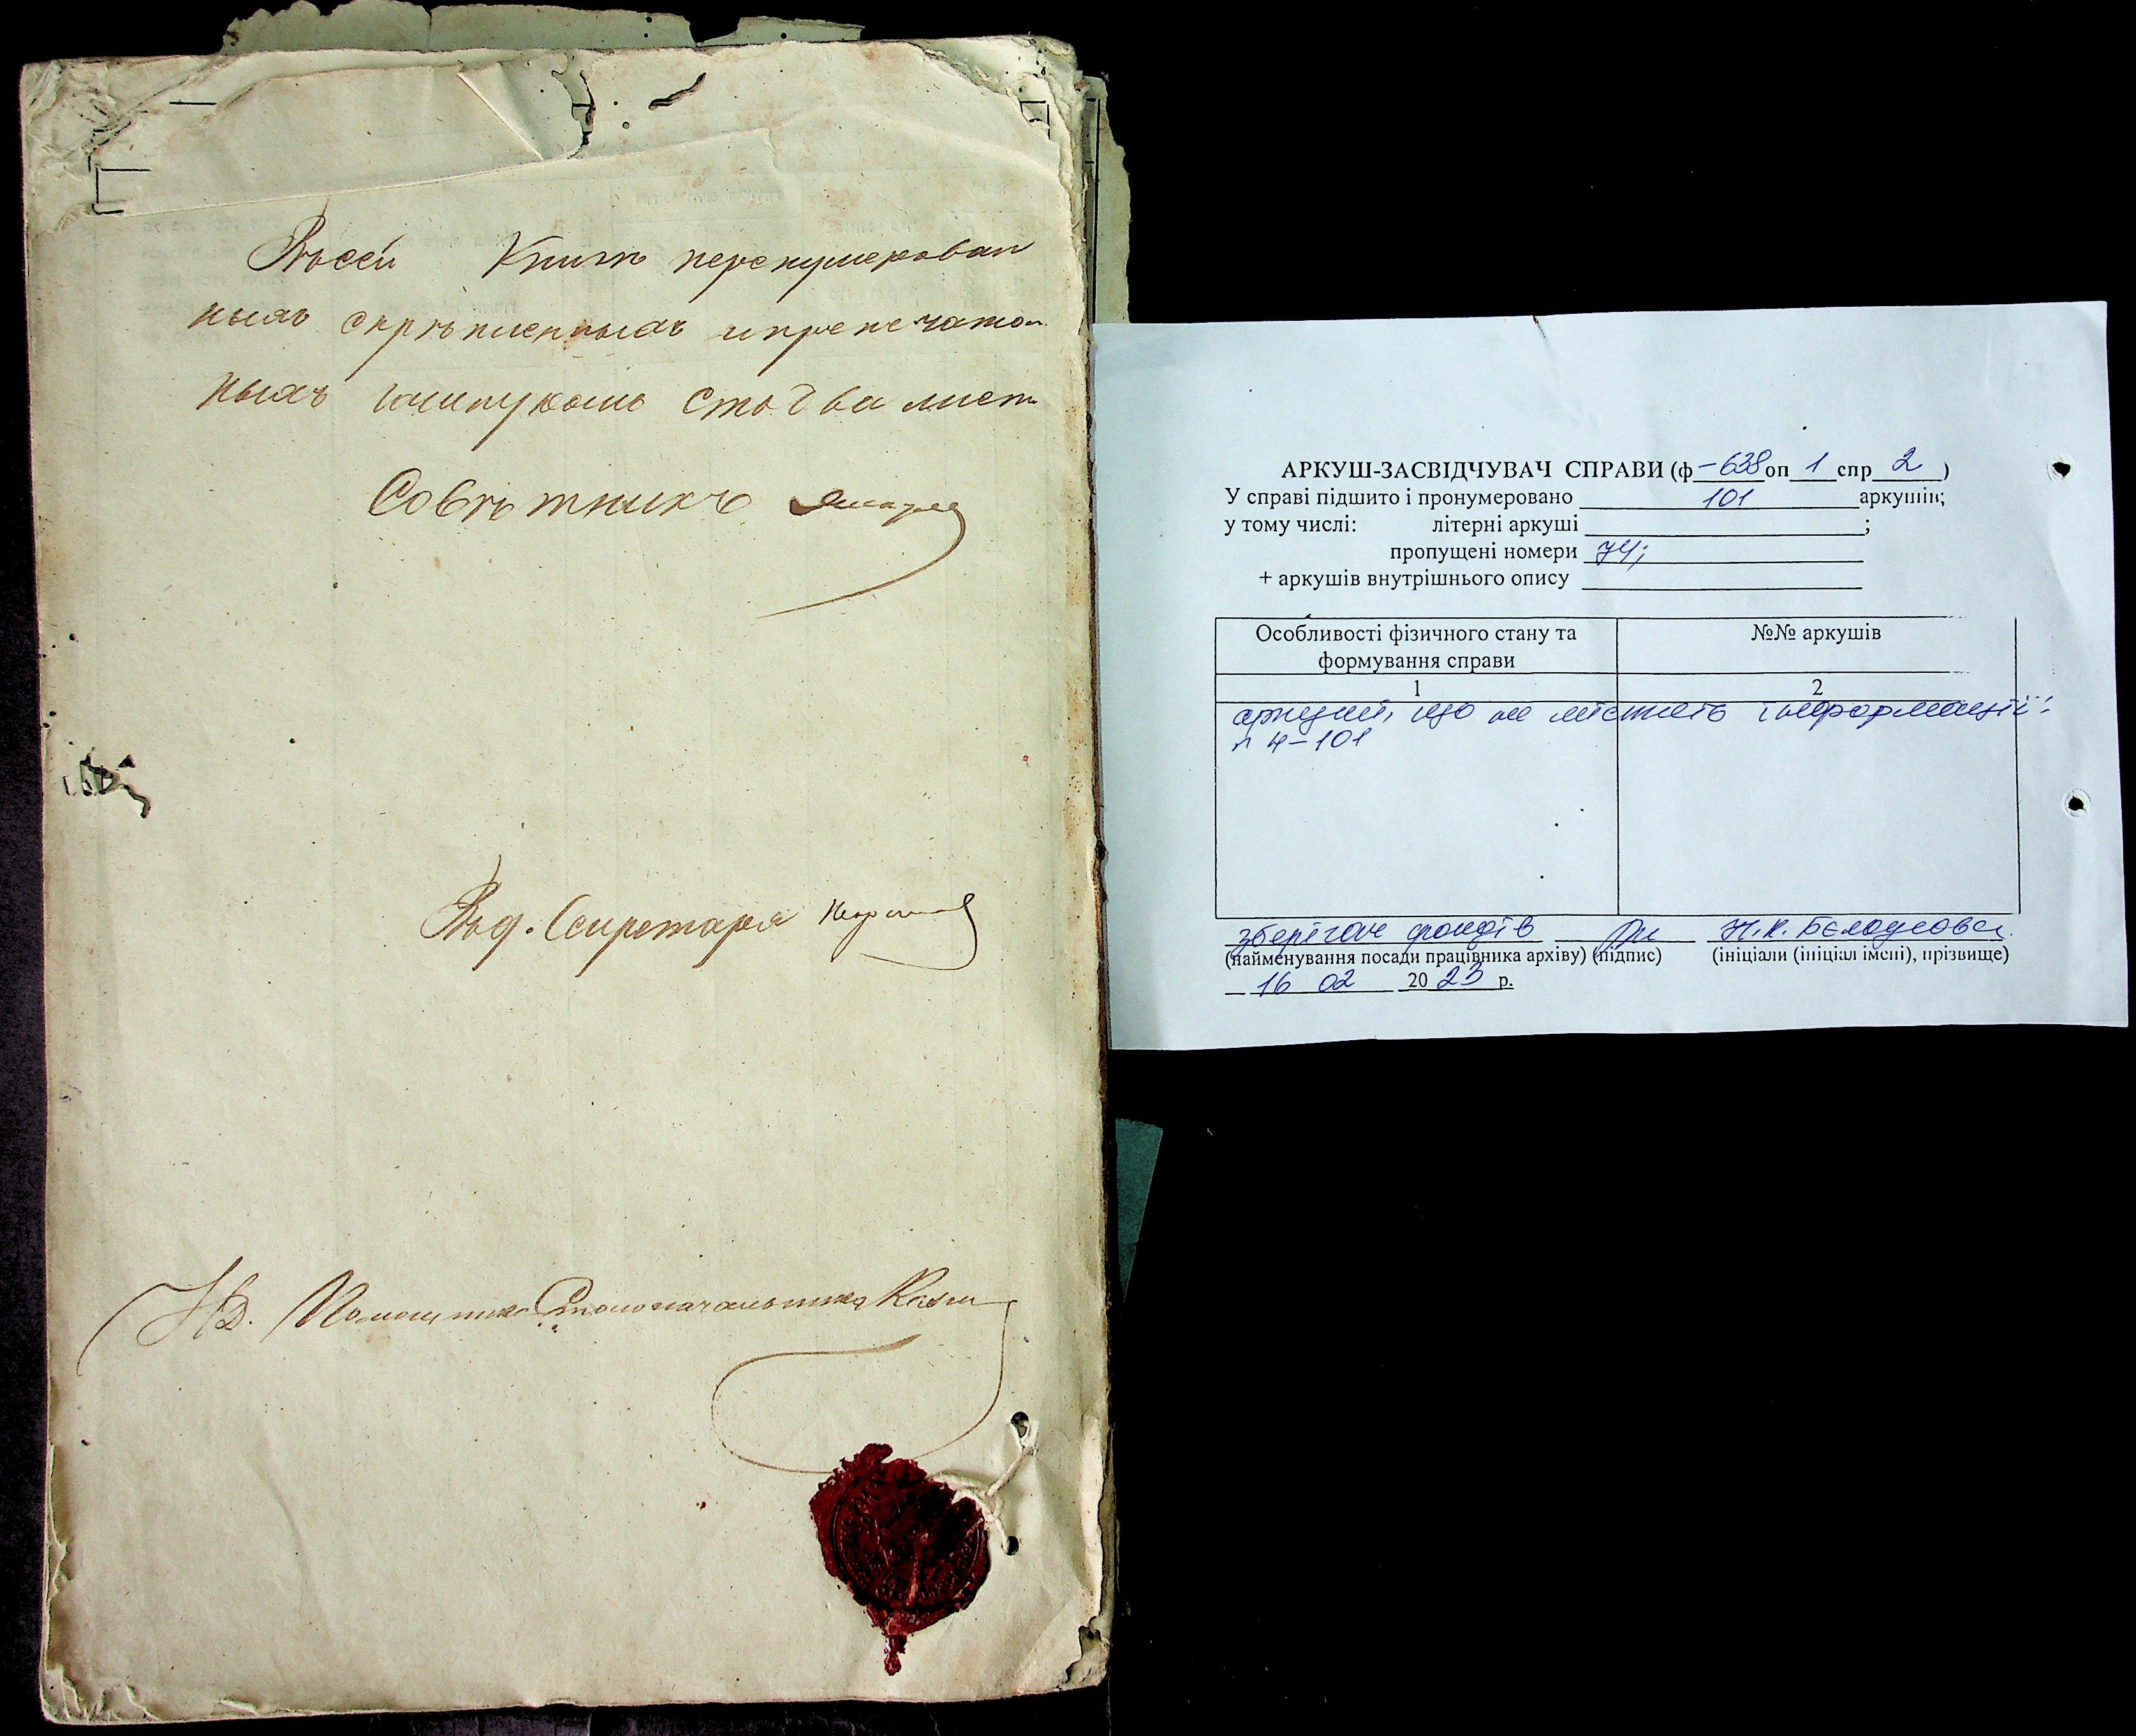 Въ сей Книгѣ перенумерован
ныхъ скрѣпленныхъ и препечатан
ныхъ сто два лист
Совѣтникъ
Секретаря
И.Д. Помощника Столоначальника
АРКУШ-ЗАСВІДЧУВАЧ СПРАВИ (ф -638 оп 1 спр 2 )
У справі підшито і пронумеровано 101 аркушів;
у тому числі: літерні аркуші ;
пропущені номери 74;
+ аркушів внутрішнього опису
Особливості фізичного стану та формування справи
№№ аркушів
1 2
аркуші, що не містять інформації:
4-101
зберігач фондів Н.К. Бєлоусова
(найменування посади працівника архіву) (підпис) (ініціали (ініціал імені), прізвище)
16 02 2023 р.